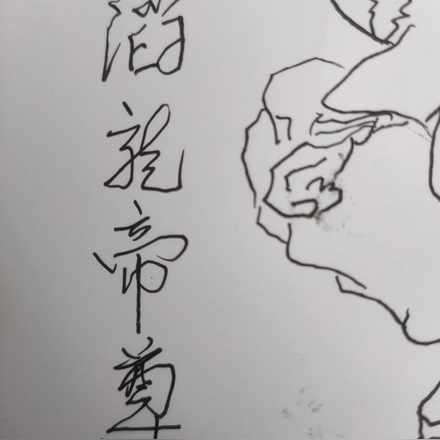 龍帝尊